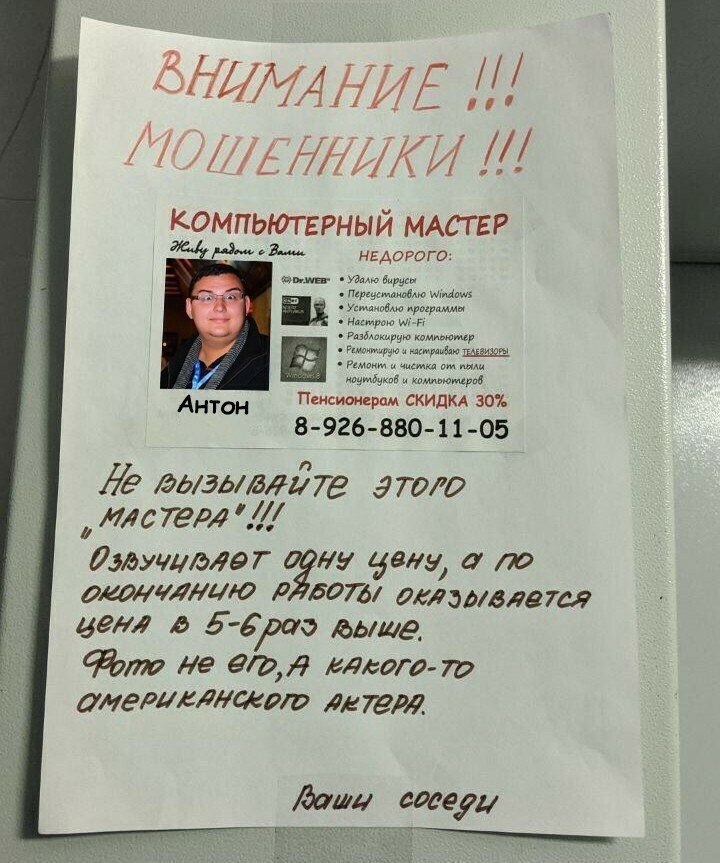 ВНИМАНИЕ !!!
МОШЕННИКИ !!!
КОМПЬЮТЕРНЫЙ МАСТЕР
Живу рядом с Вами
НЕДОРОГО:
Dr.WEB®
• Удалю вирусы
• Переустановлю Windows
• Установлю программы
• Настрою Wi-Fi
• Разблокирую компьютер
• Ремонтирую и настраиваю ТЕЛЕВИЗОРЫ
• Ремонт и чистка от пыли
ноутбуков и компьютеров
Антон
Пенсионерам СКИДКА 30%
8-926-880-11-05
Не вызывайте этого
„мастера"!!!
Озвучивает одну цену, а по
окончанию работы оказывается
цена в 5-6 раз выше.
Фото не его, а какого-то
американского актера.
Ваши соседи